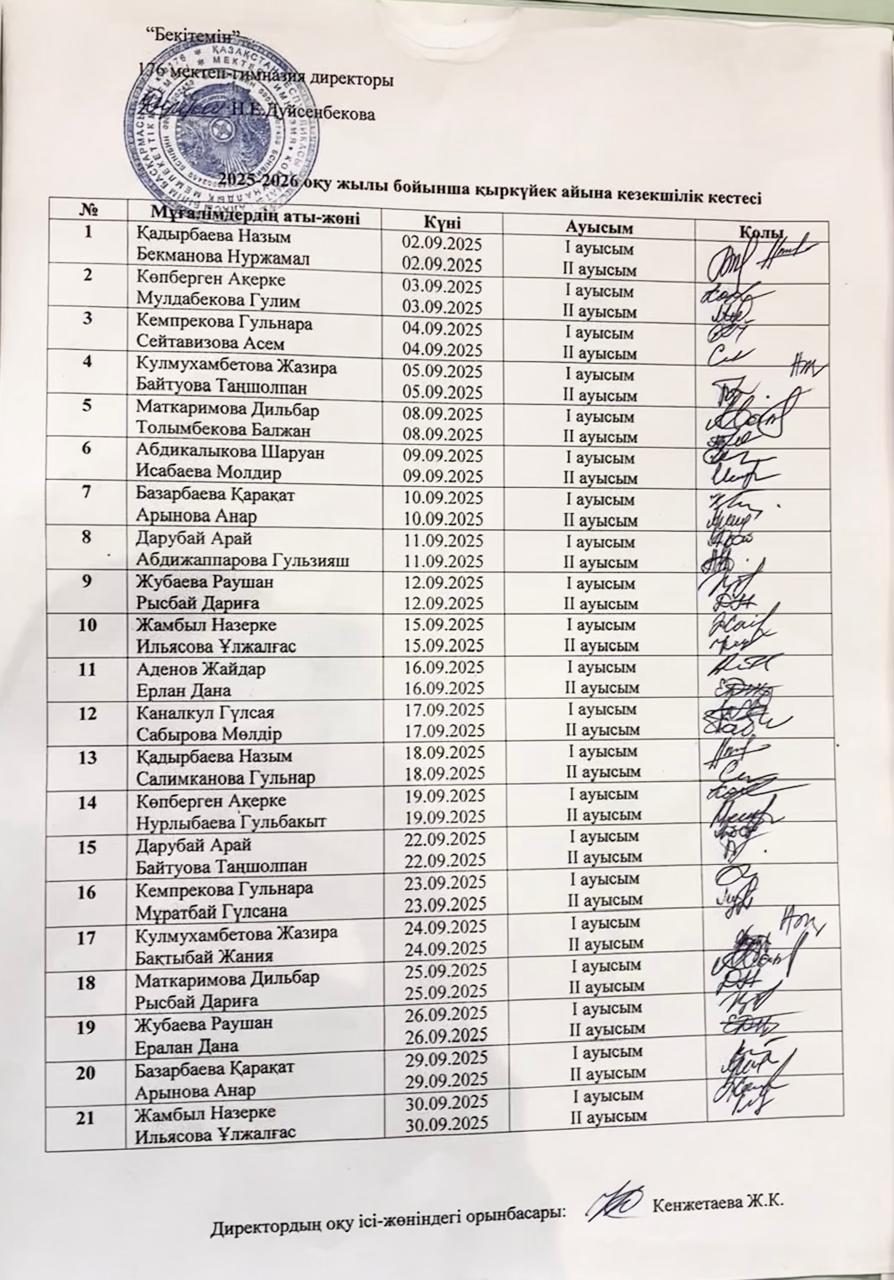 “Бекітемін”
176 мектеп-гимназия директоры
Н.Е.Дүйсенбекова
2025-2026 оқу жылы бойынша қыркүйек айына кезекшілік кестесі
№ Мұғалімдердің аты-жөні Күні Ауысым Қолы
1 Қадырбаева Назым 02.09.2025 I ауысым
Бекманова Нуржамал 02.09.2025 II ауысым
2 Көпберген Ақерке 03.09.2025 I ауысым
Мулдабекова Гулим 03.09.2025 II ауысым
3 Кемпрекова Гульнара 04.09.2025 I ауысым
Сейтавизова Асем 04.09.2025 II ауысым
4 Кулмухамбетова Жазира 05.09.2025 I ауысым
Байтуова Таңшолпан 05.09.2025 II ауысым
5 Маткаримова Дильбар 08.09.2025 I ауысым
Толымбекова Балжан 08.09.2025 II ауысым
6 Абдикалыкова Шаруан 09.09.2025 I ауысым
Исабаева Молдир 09.09.2025 II ауысым
7 Базарбаева Қарақат 10.09.2025 I ауысым
Арынова Анар 10.09.2025 II ауысым
8 Дарубай Арай 11.09.2025 I ауысым
Абдижаппарова Гульзияш 11.09.2025 II ауысым
9 Жубаева Раушан 12.09.2025 I ауысым
Рысбай Дариға 12.09.2025 II ауысым
10 Жамбыл Назерке 15.09.2025 I ауысым
Ильясова Ұлжалғас 15.09.2025 II ауысым
11 Аденов Жайдар 16.09.2025 I ауысым
Ерлан Дана 16.09.2025 II ауысым
12 Каналкул Гүлсая 17.09.2025 I ауысым
Сабырова Мөлдір 17.09.2025 II ауысым
13 Қадырбаева Назым 18.09.2025 I ауысым
Салимканова Гульнар 18.09.2025 II ауысым
14 Көпберген Ақерке 19.09.2025 I ауысым
Нурлыбаева Гульбакыт 19.09.2025 II ауысым
15 Дарубай Арай 22.09.2025 I ауысым
Байтуова Таңшолпан 22.09.2025 II ауысым
16 Кемпрекова Гульнара 23.09.2025 I ауысым
Мұратбай Гүлсана 23.09.2025 II ауысым
17 Кулмухамбетова Жазира 24.09.2025 I ауысым
Бақтыбай Жания 24.09.2025 II ауысым
18 Маткаримова Дильбар 25.09.2025 I ауысым
Рысбай Дариға 25.09.2025 II ауысым
19 Жубаева Раушан 26.09.2025 I ауысым
Ералан Дана 26.09.2025 II ауысым
20 Базарбаева Қарақат 29.09.2025 I ауысым
Арынова Анар 29.09.2025 II ауысым
21 Жамбыл Назерке 30.09.2025 I ауысым
Ильясова Ұлжалғас 30.09.2025 II ауысым
Директордың оқу ісі-жөніндегі орынбасары: Кенжетаева Ж.К.